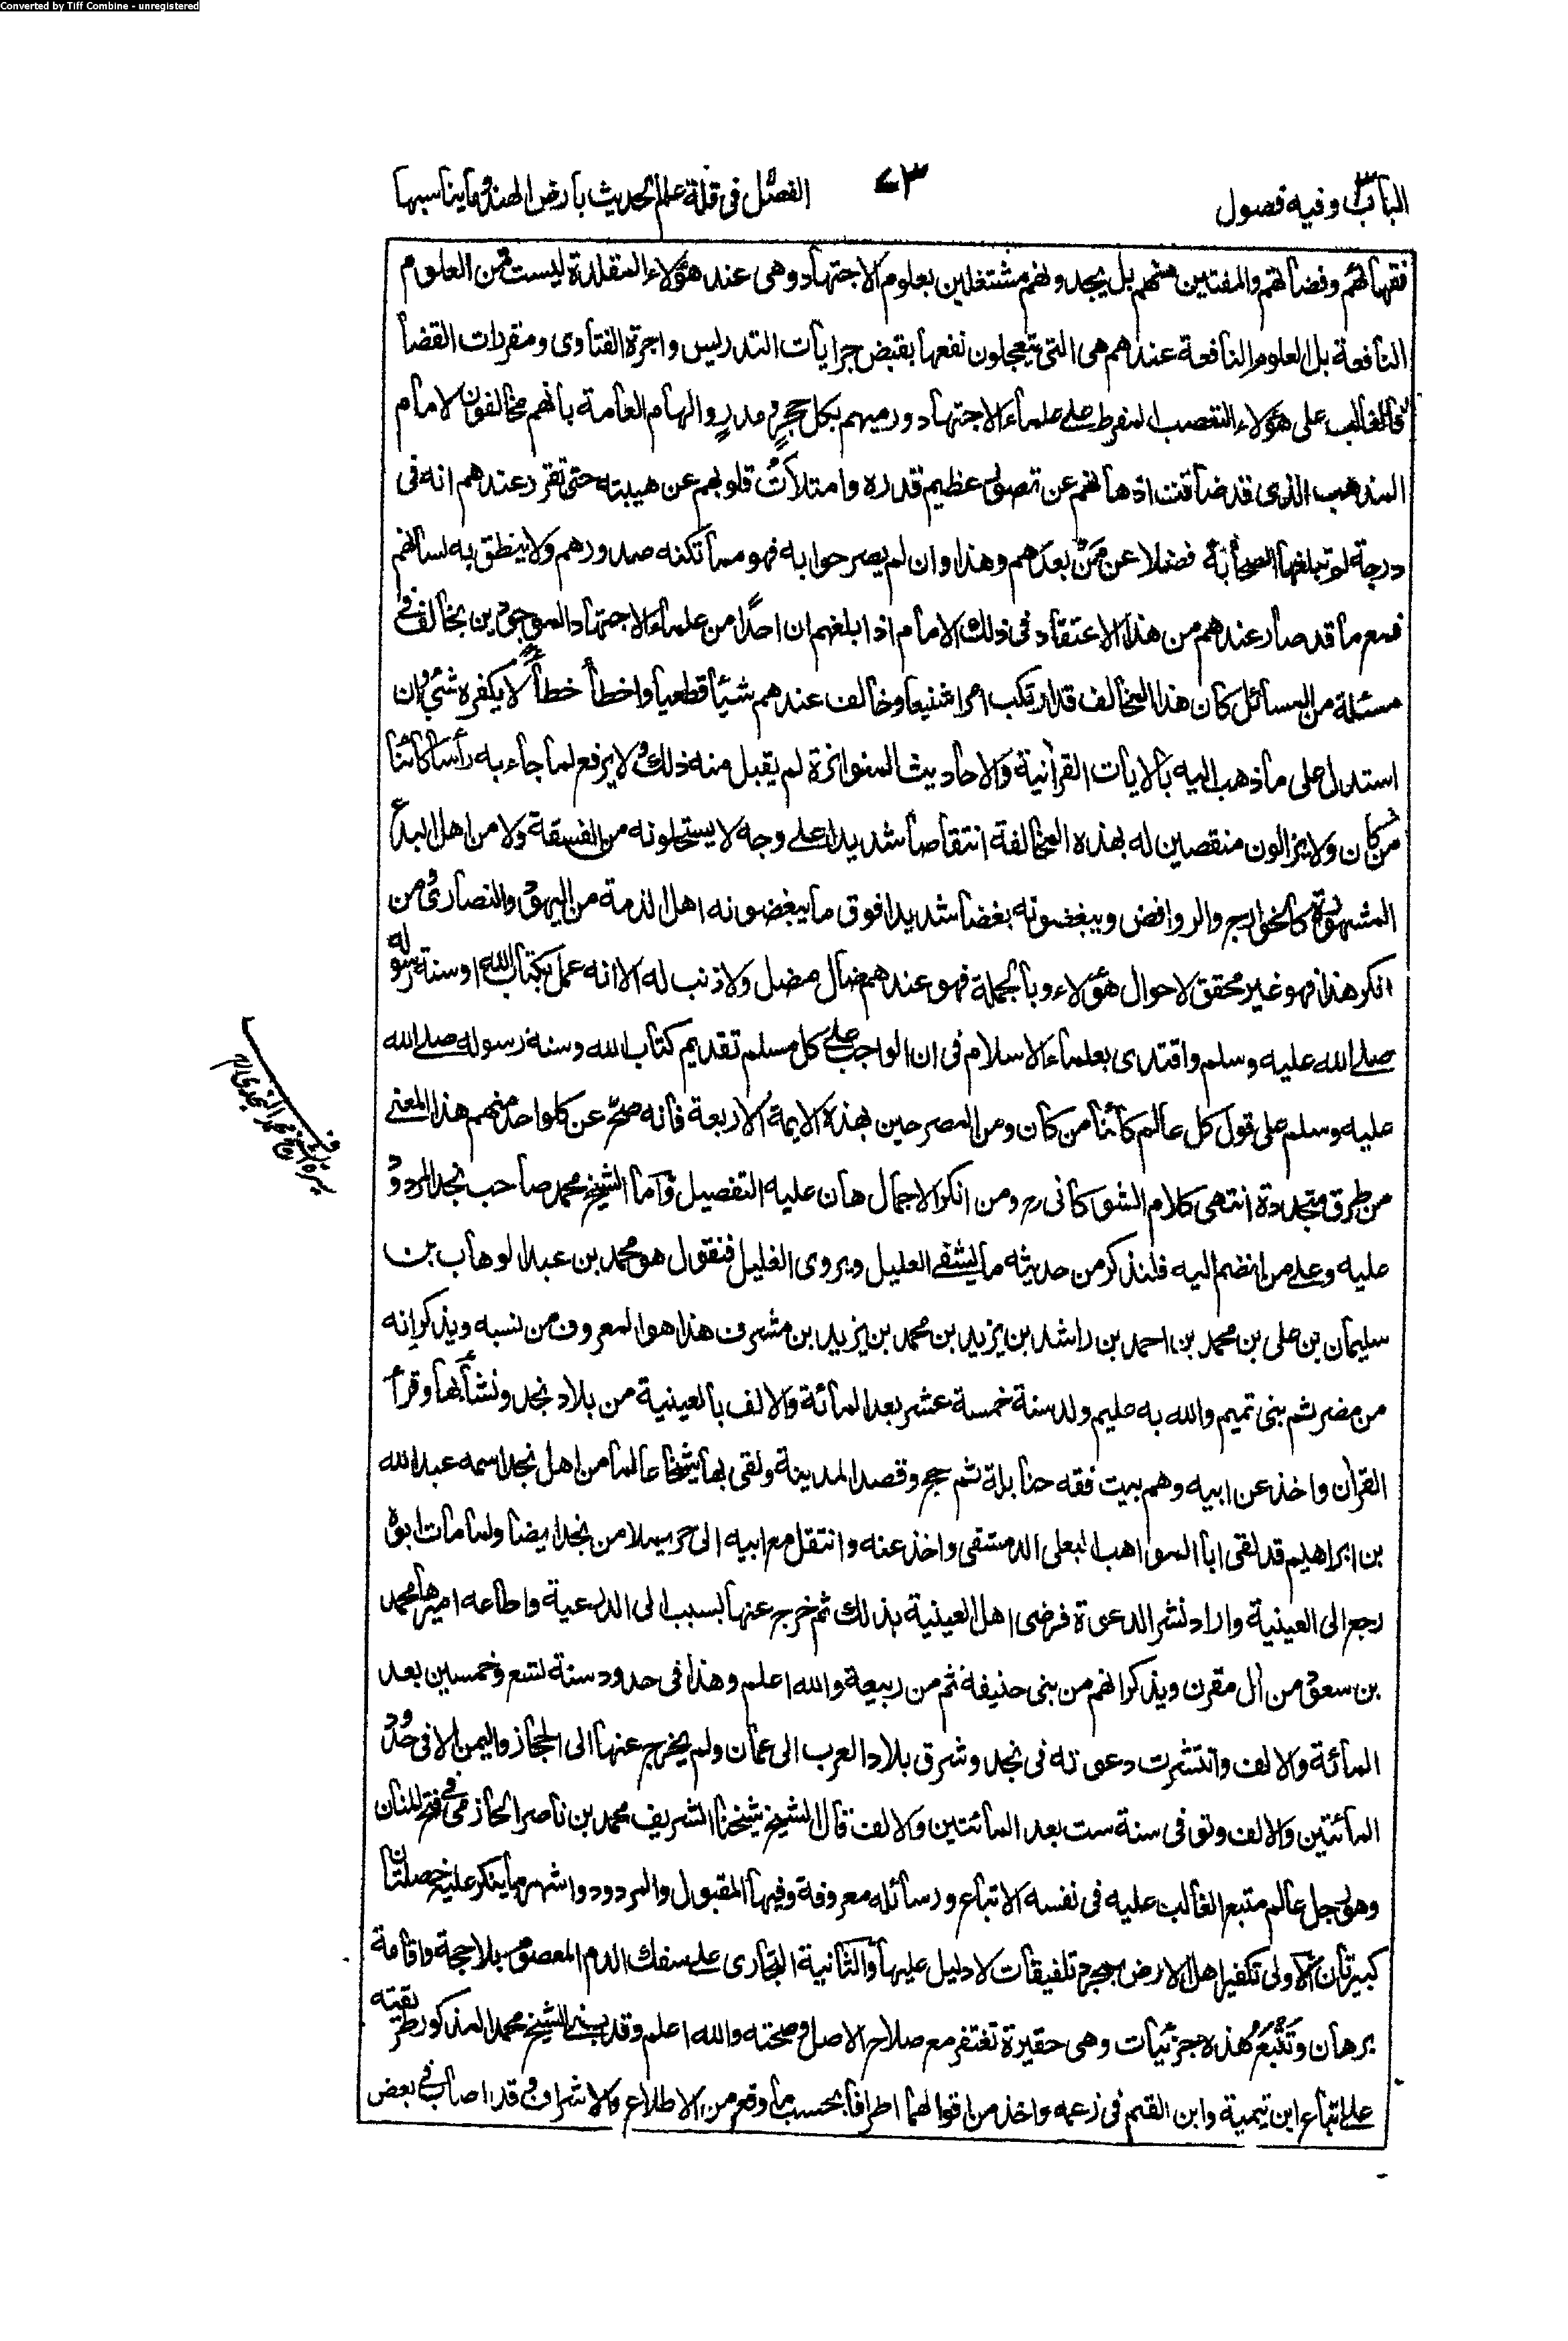 Converted by Tiff Combine - unregistered
الباب٣ وفيه فصول
٧٣
الفصل فى قلة علم الحديث بأرض الهند وما يناسبها
فقهائهم وفضائهم والمفتيين منهم بل يجدونهم مشتغلين بعلوم الاجتهاد وهى عند هؤلاء المقلدة ليست من العلوم
النافعة بل العلوم النافعة عندهم هى التى يتعجلون نفعها بقبض جرايات التدريس واجرة الفتاوى ومقررات القضا
فالغالب على هؤلاء التعصب المفرط على علماء الاجتهاد ورميهم بكل حجر ومدر وايهام العامة بانهم مخالفون لامام
المذهب الذى قد ضاقت اذهانهم عن تصور عظيم قدره وامتلأت قلوبهم عن هيبته حتى تقرر عندهم انه فى
درجة لم تبلغها الصحابة فضلا عن من بعدهم وهذا وان لم يصرحوا به فهو مما تكنه صدورهم ولا ينطق به لسانهم
فمع ما قد صار عندهم من هذا الاعتقاد فى ذلك الامام اذا بلغهم ان احدًا من علماء الاجتهاد الموجودين يخالف فى
مسئلة من المسائل كان هذا المخالف قد ارتكب امرا شنيعا وخالف عندهم شيئا قطعيا واخطأ خطأً لا يكفره شئ وان
استدل على ما ذهب اليه بالايات القرأنية والاحاديث المتواترة لم يقبل منه ذلك ولا يرفع لما جاء به رأسا كائنا
من كان ولا يزالون منقصين له بهذه المخالفة انتقاصا شديدا على وجه لا يستحلونه من الفسقة ولا من اهل البدع
المشهورة كالخوارج والروافض ويبغضونه بغضا شديدا فوق ما يبغضونه اهل الذمة من اليهود والنصارى ومن
انكر هذا فهو غير محقق لاحوال هؤلاء وبالجملة فهو عندهم ضال مضل ولا ذنب له الا انه عمل بكتاب الله او سنة رسوله
صلى الله عليه وسلم واقتدى بعلماء الاسلام فى ان الواجب على كل مسلم تقديم كتاب الله وسنة رسوله صلى الله
عليه وسلم على قول كل عالم كائنا من كان ومن المصرحين بهذه الايمة الاربعة فانه صح عن كل واحد منهم هذا المعنى
من طرق متجددة انتهى كلام الشوكانى رح ومن انكر الاجمال هان عليه التفصيل واما الشيخ محمد صاحب نجد المردود
عليه وعلى من انضم اليه فلنذكر من حديثه ما يشفى العليل ويروى الغليل فنقول هو محمد بن عبد الوهاب بن
سليمان بن على بن محمد بن احمد بن راشد بن يزيد بن محمد بن يزيد بن مشرف هذا هو المعروف من نسبه ويذكر انه
من مضر ثم بنى تميم والله به عليم ولد سنة خمسة عشر بعد المائة والالف بالعينية من بلاد نجد ونشأ بها وقرأ
القران واخذ عن ابيه وهم بيت فقه حنابلة ثم حج وقصد المدينة ولقى بها شيخا عالما من اهل نجد اسمه عبد الله
بن ابراهيم قد لقى ابا المواهب البعلى الدمشقى واخذ عنه وانتقل مع ابيه الى حريملا من نجد ايضا ولما مات ابوه
رجع الى العينية واراد نشر الدعوة فرضى اهل العينية بذلك ثم خرج عنها بسبب الى الدرعية واطاعه اميرها محمد
بن سعود من ال مقرن ويذكر انهم من بنى حنيفة ثم من ربيعة والله اعلم وهذا فى حدود سنة تسع وخمسين بعد
المائة والالف وانتشرت دعوته فى نجد وشرق بلاد العرب الى عمان ولم يخرج عنها الى الحجاز واليمن الا فى حدود
المائتين والالف وتوفى سنة ست بعد المائتين والالف قال الشيخ شيخنا الشريف محمد بن ناصر الحازمى فى فتح المنان
وهو رجل عالم متبع الغالب عليه فى نفسه الاتباع ورسائله معروفة وفيها المقبول والمردود واشهر ما ينكر عليه خصلتان
كبيرتان الاولى تكفير اهل الارض بمجرد تلفيقات لا دليل عليها والثانية التجارى على سفك الدم المعصوم بلا حجة واقامة
برهان وتتبع هذه جزئيات وهى حقيرة تغتفر مع صلاح الاصل وصحته والله اعلم وقد بنى الشيخ محمد المذكور طريقته
على اتباع ابن تيمية وابن القيم فى زعمه واخذ من اقوالهما اطرافا بحسب ما وقع من الاطلاع والاشراف وقد اصاب فى بعض